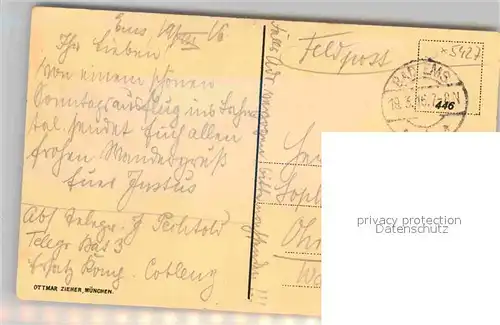 Ems 19/III 16
Ihr Lieben
Von einem schönen
Sonntagsausflug ins Lahn-
tal sendet Euch allen
frohen Wandergruß
Euer Justus
Abs. Telegr. J.
Telegr Bat 3
Ersatz Komp. Coblenz
OTTMAR ZIEHER, MÜNCHEN.
Falls Adr verzogen bitte nachsenden !!!
Feldpost
* 5427
BAD EMS
446
privacy protection
Datenschutz